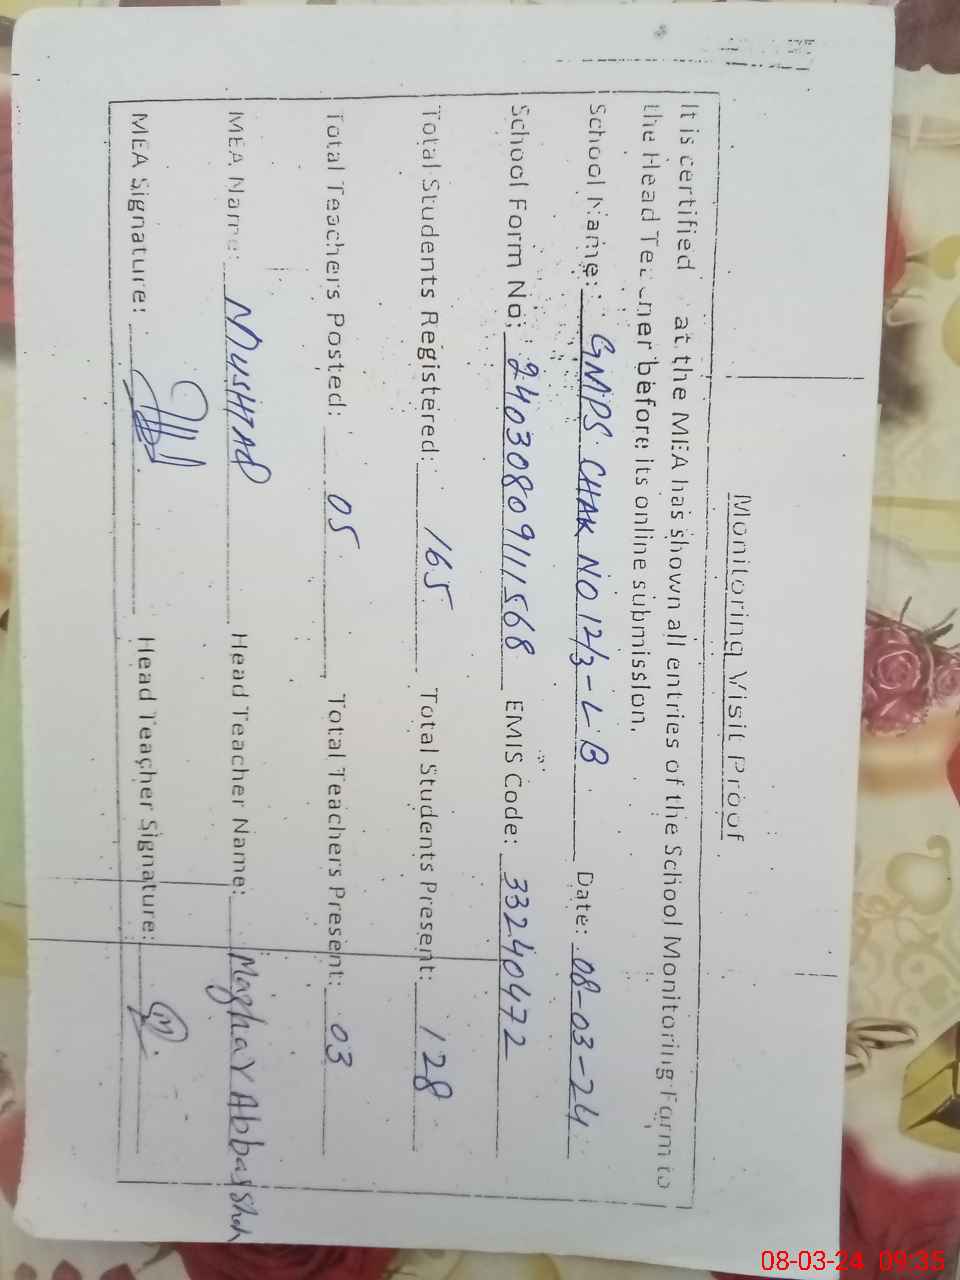 Monitoring Visit Proof
It is certified at the MEA has shown all entries of the School Monitoring Form to
the Head Teacher before its online submission.
School Name: GMPS CHAK NO 12/3-LB Date: 08-03-24
School Form No: 24030809111568 EMIS Code: 33240472
Total Students Registered: 165 Total Students Present: 128
Total Teachers Posted: 05 Total Teachers Present: 03
MEA Name: MUSHTAQ Head Teacher Name: Maghar Abbas Shah
MEA Signature: Head Teacher Signature:
08-03-24 09:35